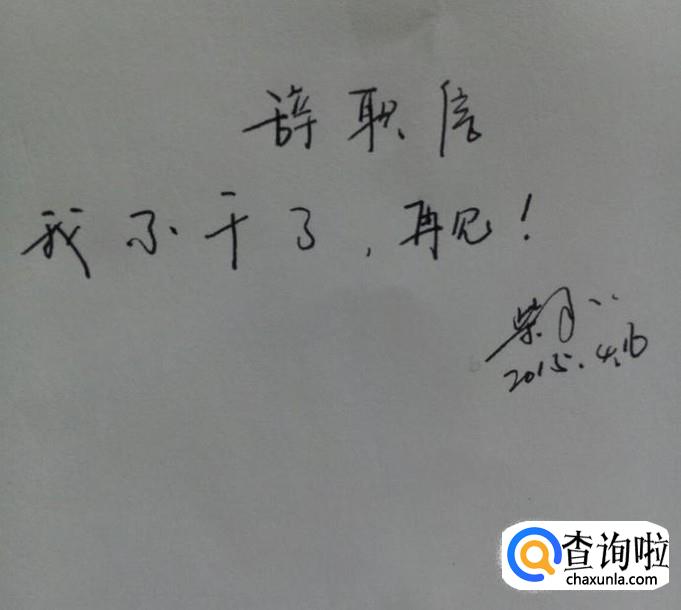 辞职信
我不干了，再见！
柴
2015.4.16
查询啦
chaxunla.com